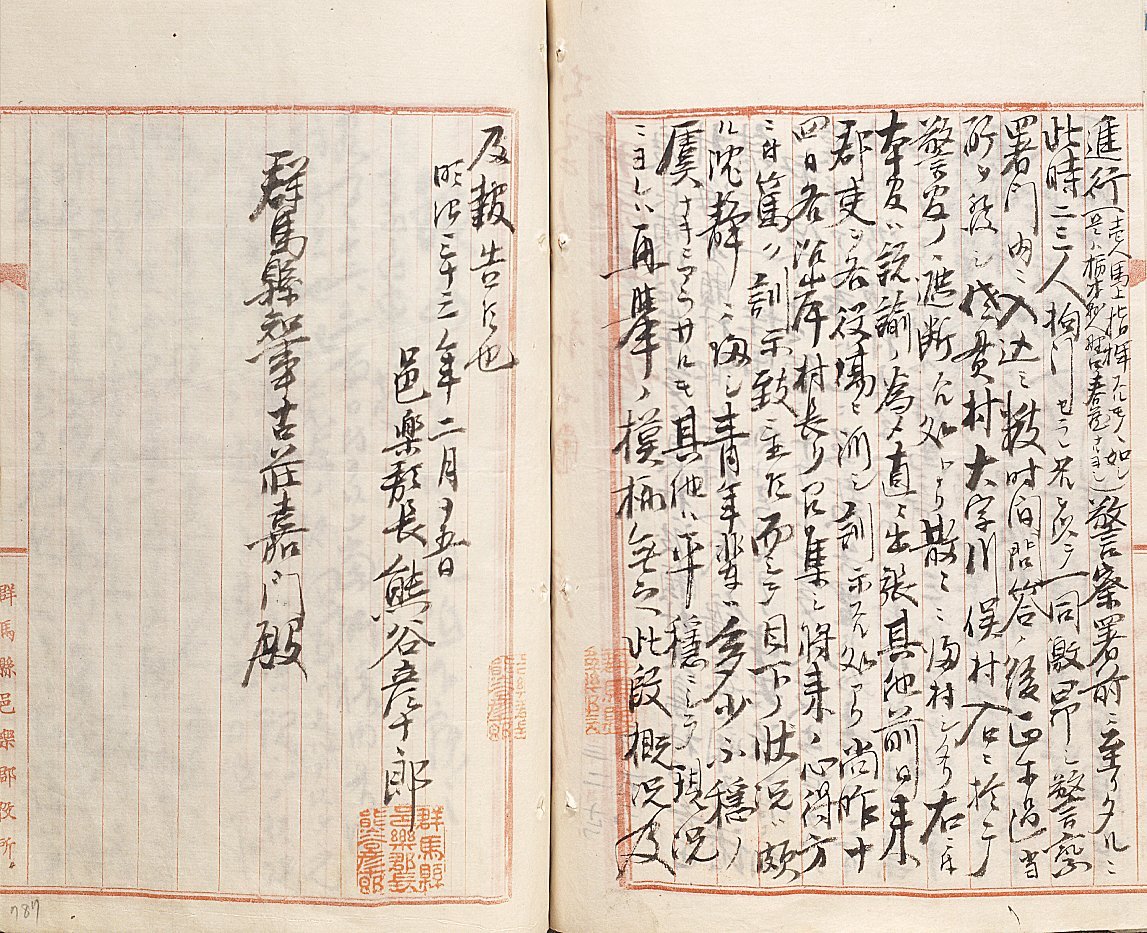 進行(壱人馬上指揮スルモノヽ如シ
是ハ栃木県人野口春蔵ナリシ)警察署前ニ至リタルニ
此時二三人拘門セラレ君ヲ以テ一同激昂シ警察
署門内ニ入込ミ数时间問答ノ後正午過当
所ヲ発シ佐貫村大字川俣村入口ニ於テ
警官ノ遮断スル処トナリ散々ニ歸村シタリ右ニ付
本官ハ説諭ノ為メ直ニ出張其他前日来
郡吏ヲ各役場ヘ派シ訓示スル処アリ尚昨十
四日各沿岸村長ヲ召集シ将来ノ心得方
ニ付篤ク訓示致置候而シテ目下ノ状況ハ頗
ル沈静ニ歸シ青年輩ハ多少不穏ノ
虞ナキニアラサルモ其他ハ平穏ニシテ現況
ニヨレハ再挙ノ模様無之此段概況及
及報告候也
明治三十三年二月十五日
邑楽郡長熊谷彦十郎
群馬縣知事古荘嘉門殿
群馬縣邑楽郡長熊谷彦郎
群馬縣邑樂郡役所
787